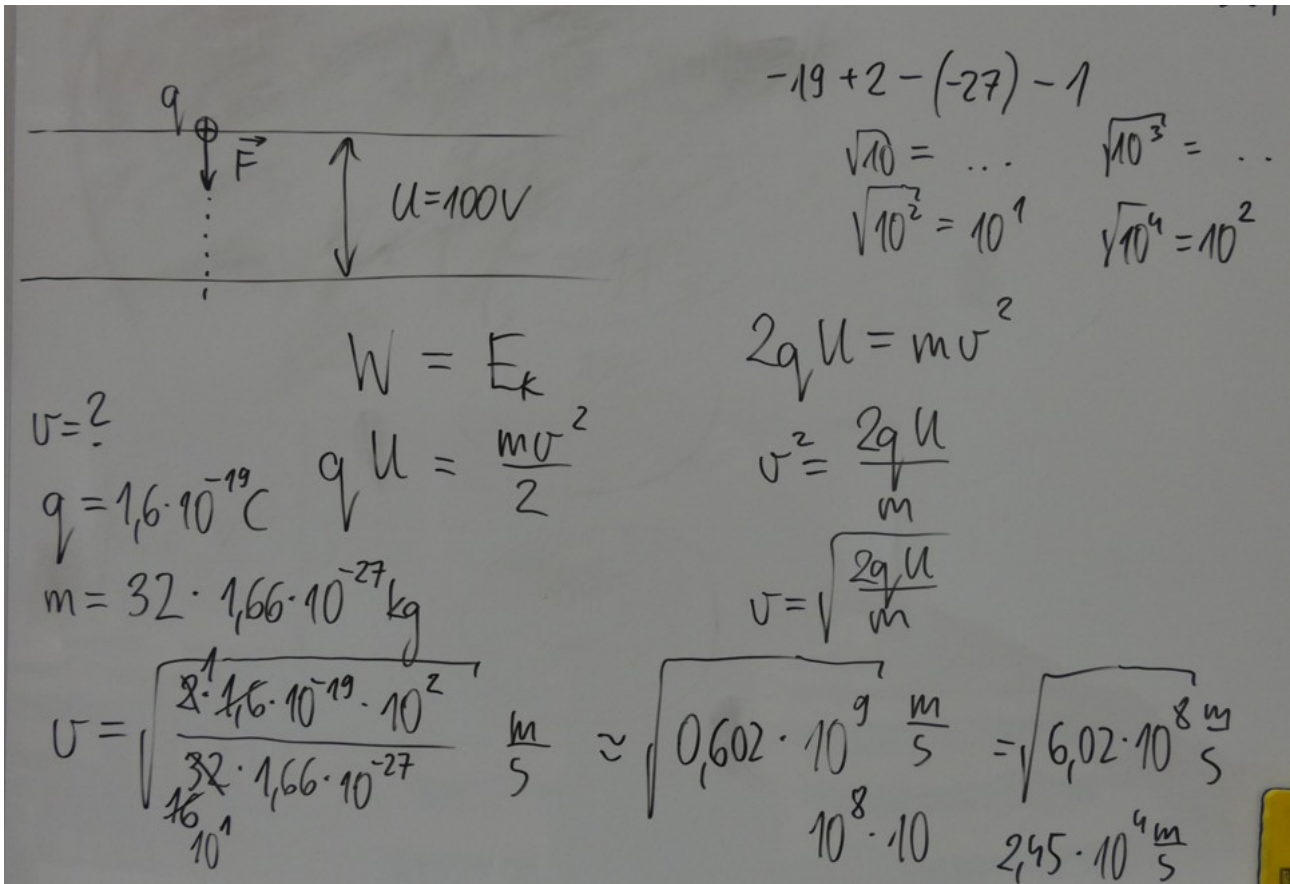 q
F⃗
U=100V
-19+2-(-27)-1
√10 = ... √10³ = ..
√10² = 10¹ √10⁴ = 10²
W = Eₖ
qU = mv²/2
v=?
q = 1,6·10⁻¹⁹C
m = 32·1,66·10⁻²⁷kg
2qU = mv²
v² = 2qU/m
v = √(2qU/m)
v = √(2·1,6·10⁻¹⁹·10²/32·1,66·10⁻²⁷) m/s ≈ √(0,602·10⁹) m/s = √(6,02·10⁸) m/s
1
16
10¹
10⁸·10
2,45·10⁴ m/s